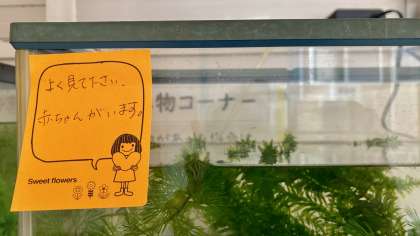 よく見て下さい、
赤ちゃんがいます。
Sweet flowers
物コーナー